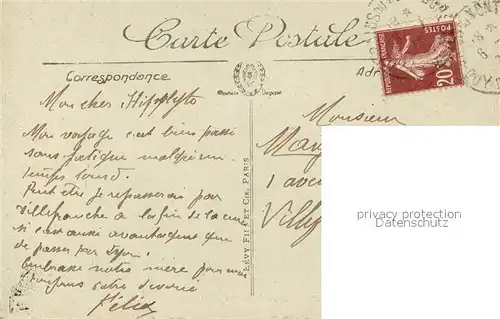 Carte Postale
Correspondence
Adr
Modèle Déposé
REPUBLIQUE FRANÇAISE
POSTES
20
LÉVY FILS ET CIE, PARIS
Mon cher Hippolyte
Mon voyage est bien passé
sans fatigue malgré un
temps lourd.
Peut être je repasserai par
Villefranche à la fin de la cure
si c'est aussi avantageux que
de passer par Lyon.
Embrasse notre mère pour moi
toujours votre dévoué
Félix
Monsieur
1 aven
Villef
privacy protection
Datenschutz